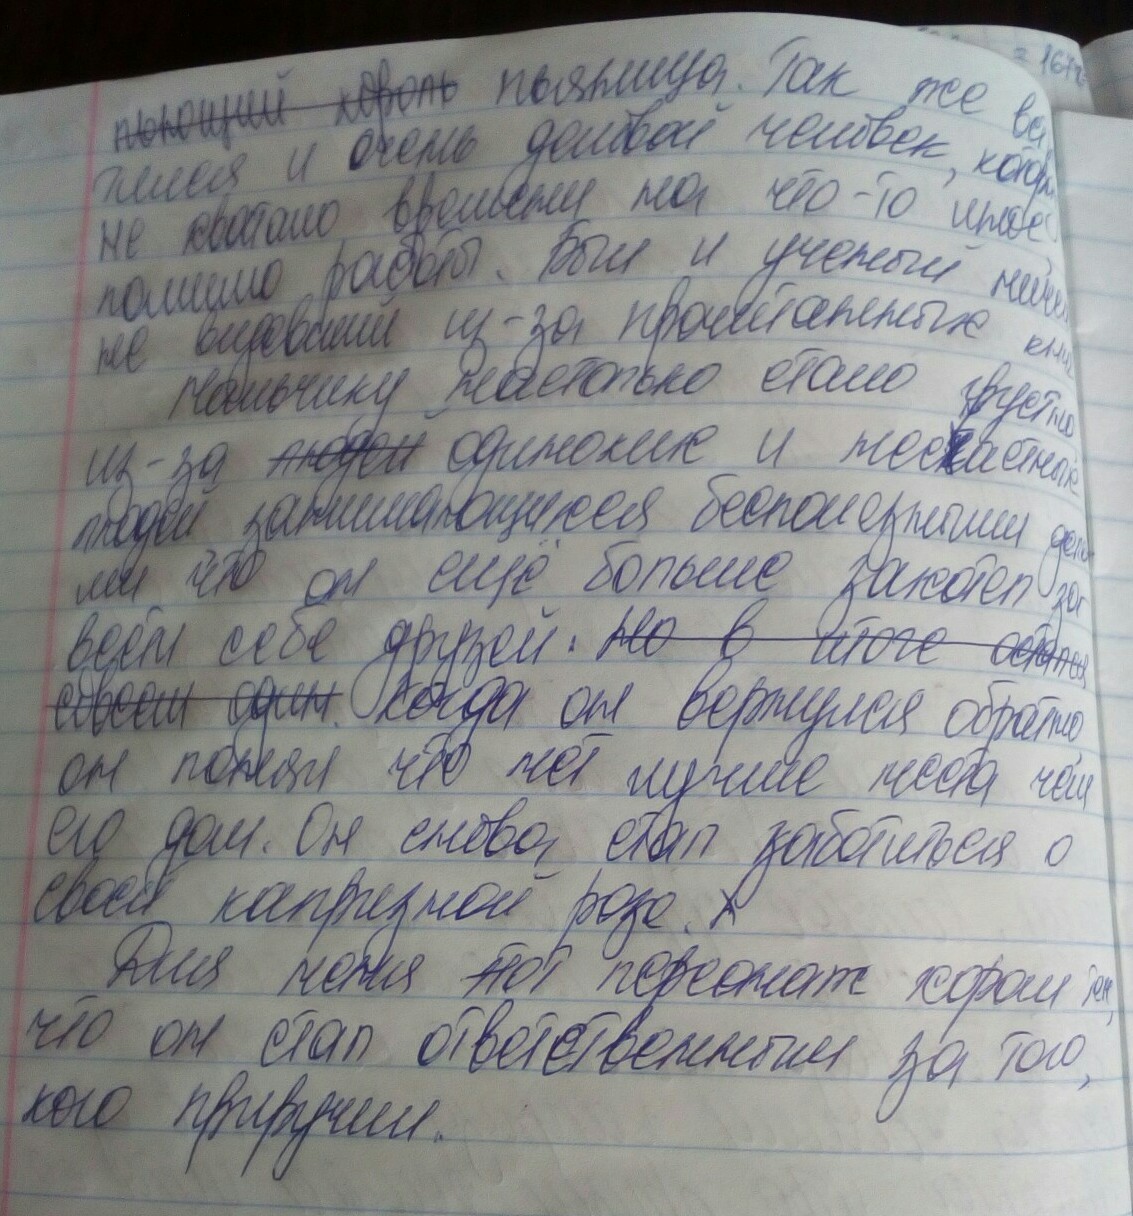 пьющий король пьяница. Так же вс
тился и очень деловой человек, котор
не хватало времени на что-то иное,
помимо работы. Был и ученый ниче
не видовший из-за прочитанных кни
Мальчику настолько стало грустно
из-за людей одиноких и несчастных
людей занимающихся бесполезными дела
ми что он ещё больше захотел за
вести себе друзей. Но в итоге остался
совсем один. Когда он вернулся обратно
он понял что нет лучше места чем
его дом. Он снова стал заботиться о
своей капризной розе.
Для меня этот персонаж хорош тем,
что он стал ответственным за того,
кого приручил.